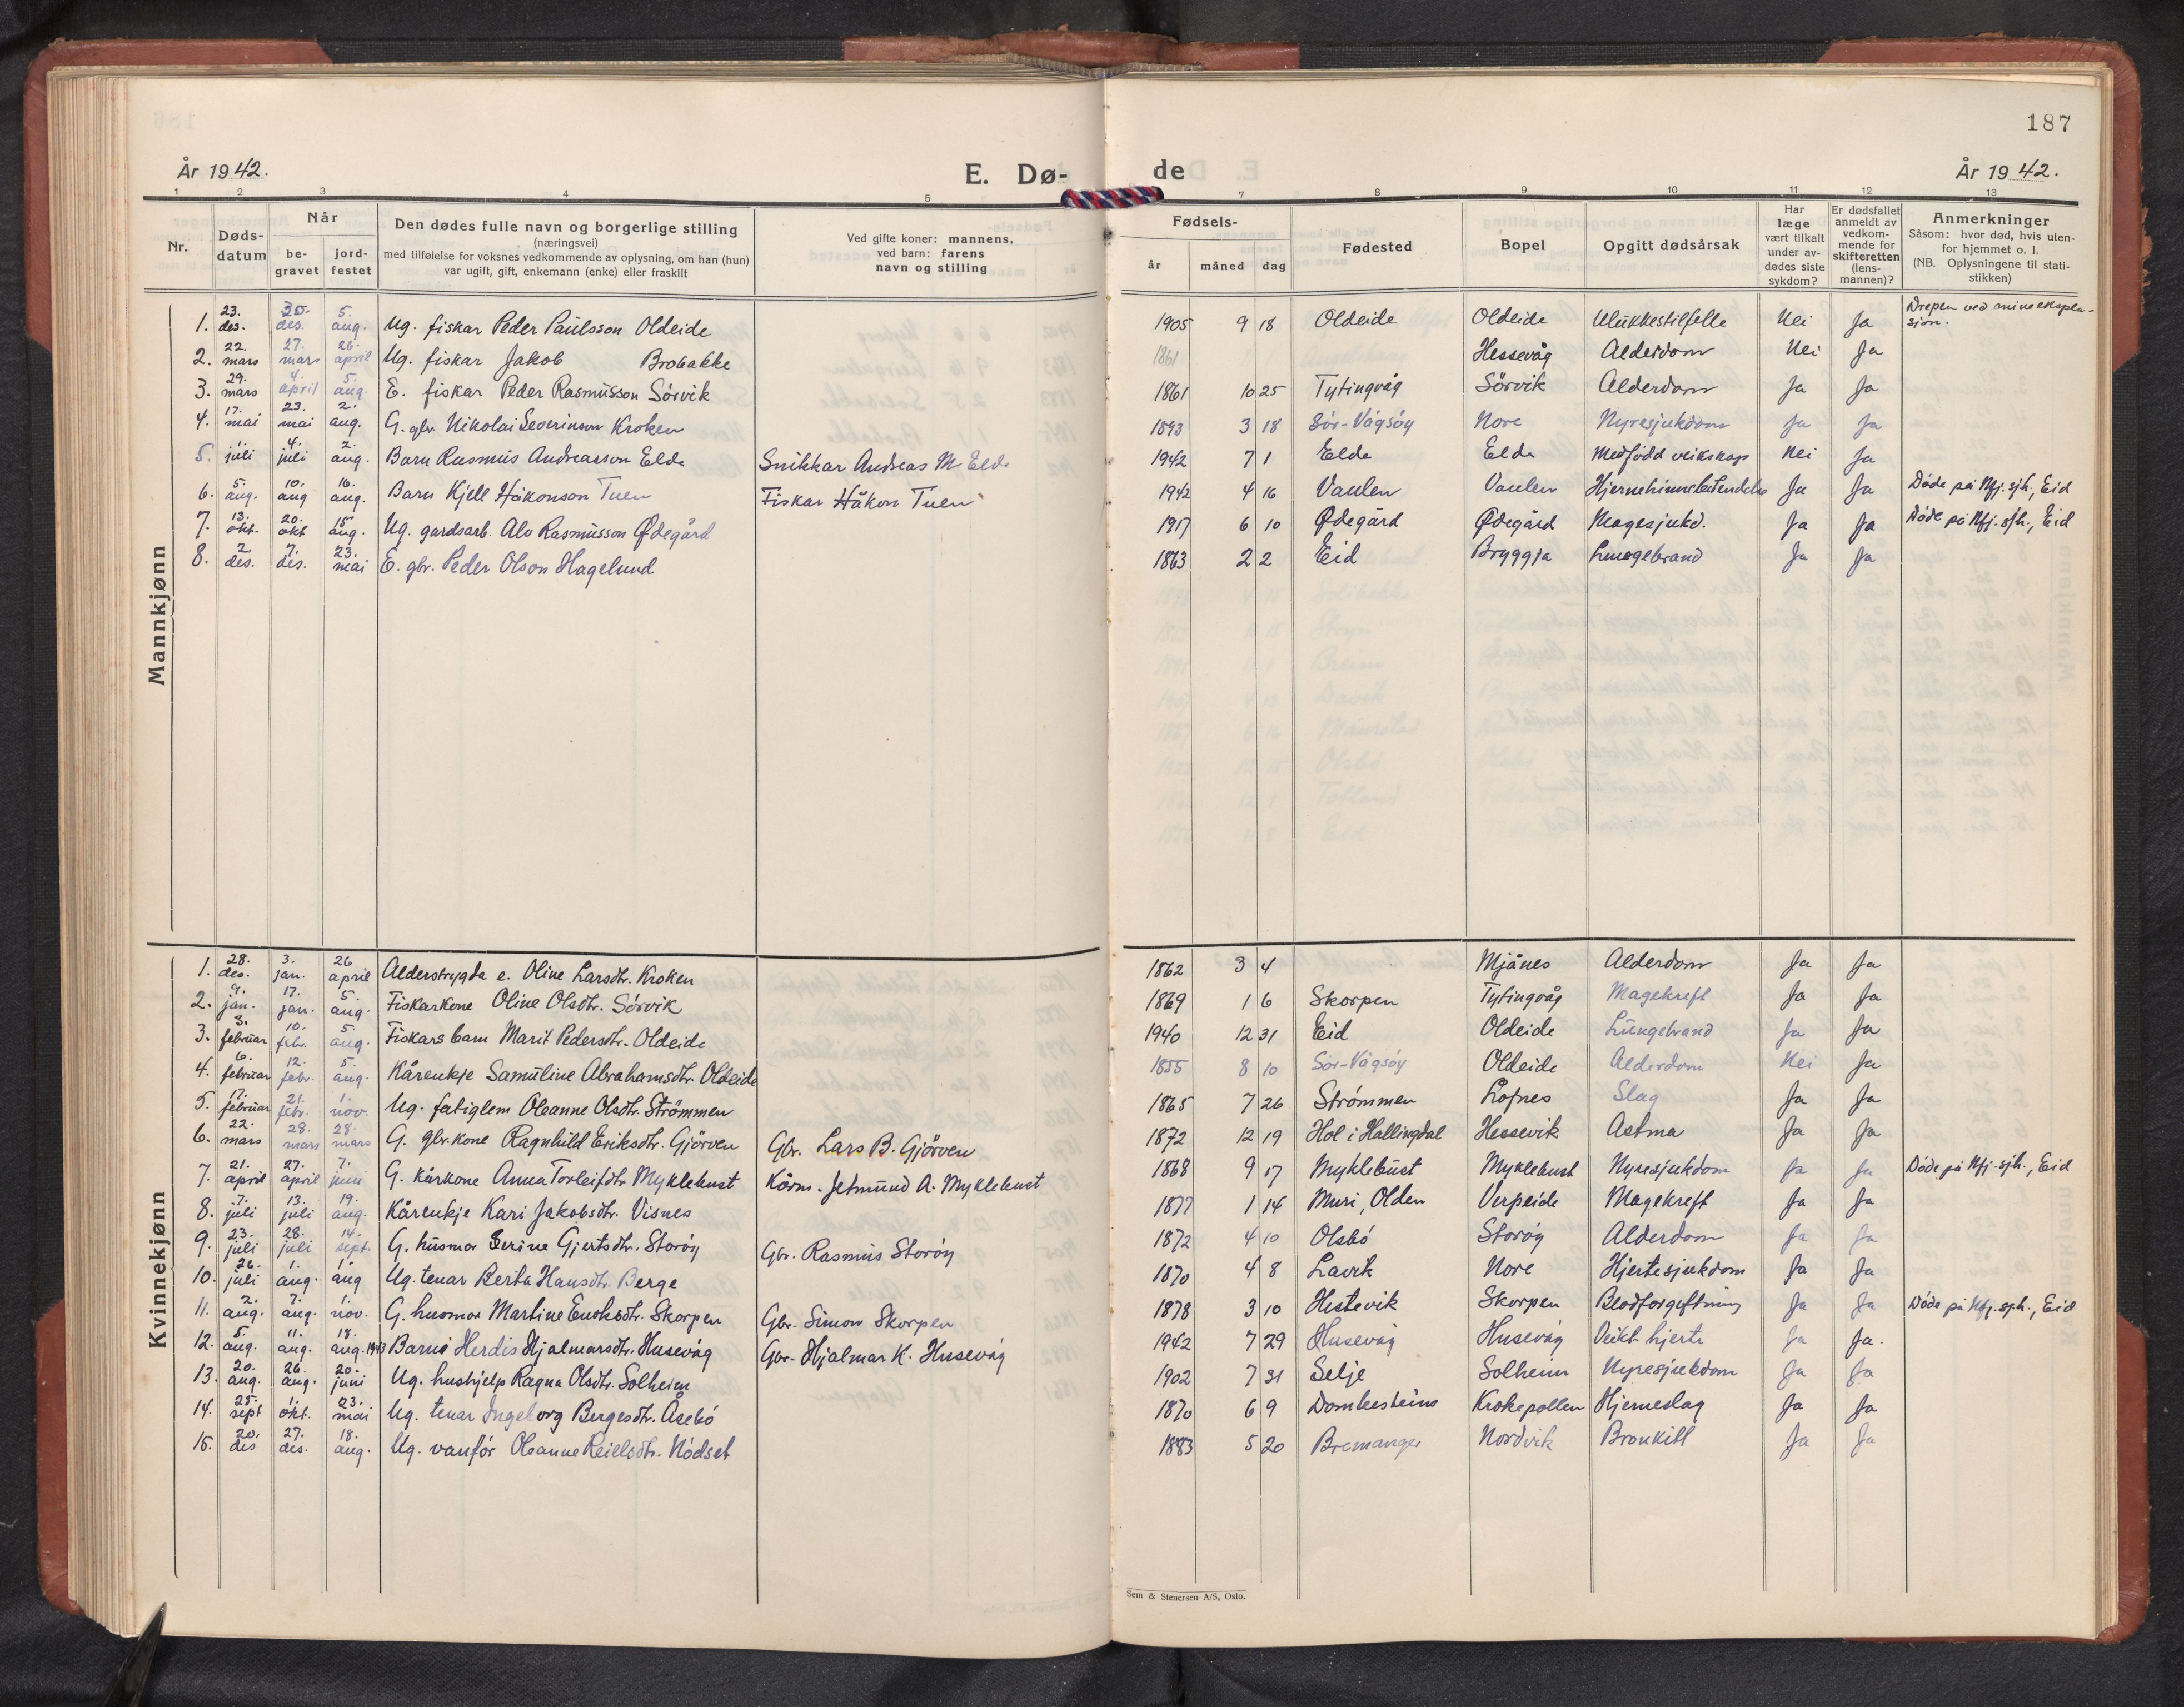 187
År 1942.
E. Dø-
de
År 1942.
1 2 3 4 5
7 8 9 10 11 12 13
Nr.
Døds-
datum
Når
be-
gravet
jord-
festet
Den dødes fulle navn og borgerlige stilling
(næringsvei)
med tilføielse for voksnes vedkommende av oplysning, om han (hun)
var ugift, gift, enkemann (enke) eller fraskilt
Ved gifte koner: mannens,
ved barn: farens
navn og stilling
Fødsels-
år måned dag
Fødested
Bopel
Opgitt dødsårsak
Har
læge
vært tilkalt
under av-
dødes siste
sykdom?
Er dødsfallet
anmeldt av
vedkom-
mende for
skifteretten
(lens-
mannen)?
Anmerkninger
Såsom: hvor død, hvis uten-
for hjemmet o. l.
(NB. Oplysningene til stati-
stikken)
Mannkjønn
1. 23. des. des. 5. aug. Ug. fiskar Peder Paulsson Oldeide 1905 9 18 Oldeide Oldeide Ulukkestilfelle Nei Ja Drepen ved mineeksplo-
sjon.
2. 22. mars 27. mars 26. april Ug. fiskar Jakob Brobakke 1861 Hessevåg Alderdom Nei Ja
3. 29. mars 4. april 5. aug. E. fiskar Peder Rasmusson Sørvik 1861 10 25 Tytingvåg Sörvik Alderdom Ja Ja
4. 17. mai 23. mai 2. aug. G. gbr. Nikolai Severinson Kroken 1893 3 18 Sør-Vågsöy Nore Nyresjukdom Ja Ja
5. 1. juli 4. juli 2. aug. Barn Rasmus Andreasson Elde Snikkar Andreas M Elde 1942 7 1 Elde Elde Medfødd veikskap Nei Ja
6. 5. aug. 10. aug 16. aug. Barn Kjell Håkonson Tuen Fiskar Håkon Tuen 1942 4 16 Vaulen Vaulen Hjernehinnebetendelse Ja Ja Døde på Nfj. sjh., Eid
7. 13. okt. 20. okt 15. aug. Ug. gardsarb. Alv Rasmusson Ødegård 1917 6 10 Ødegård Ødegård Magesjukd. Ja Ja Døde på Nfj. sjh., Eid
8. 2. des. 7. des. 23. mai E. gbr. Peder Olson Hagelund 1863 2 2 Eid Bryggja Lungebrand Ja Ja
Kvinnekjønn
1. 28. des. 3. jan. 26 april Alderstrygda e. Oline Larsdtr. Kroken 1862 3 4 Mjånes Alderdom Ja Ja
2. 9. jan. 17. jan. 5. aug. Fiskarkone Oline Olsdtr. Sörvik 1869 1 6 Skorpen Tytingvåg Magekreft Ja Ja
3. 3. februar 10. febr. 5. aug. Fiskars barn Marit Pedersdtr. Oldeide 1940 12 31 Eid Oldeide Lungebrand Ja Ja
4. 6. februar 12. febr. 5. aug. Kårenkje Samuline Abrahamsdtr. Oldeide 1855 8 10 Sør-Vågsöy Oldeide Alderdom Nei Ja
5. 17. februar 21. febr. 1. nov. Ug. fatiglem Oleanne Olsdtr. Strömmen 1865 7 26 Strömmen Lofnes Slag Ja Ja
6. 22. mars 28. mars 28. mars G. gbr.kone Ragnhild Eriksdtr. Gjörven Gbr. Lars B. Gjörven 1872 12 19 Hol i Hallingdal Hessevik Astma Ja Ja
7. 21. april 27. april 7. juni G. kårkone Anna Torleifdtr Myklebust Kårm. Jetmund A. Myklebust 1868 9 17 Myklebust Myklebust Nyresjukdom Ja Ja Døde på Nfj. sjh., Eid
8. 7. juli 13. juli 19. aug. Kårenkje Kari Jakobsdtr. Visnes 1877 1 14 Muri, Olden Verpeide Magekreft Ja Ja
9. 23. juli 28. juli 14. sept. G. husmor Serine Gjertsdtr. Storöy Gbr. Rasmus Storöy 1872 4 10 Olsbö Storöy Alderdom Ja Ja
10. 26. juli 1. aug. 1. aug Ug. tenar Berta Hansdtr. Berge 1870 4 8 Lavik Nore Hjertesjukdom Ja Ja
11. 2. aug. 7. aug. 1. nov. G. husmor Martine Enoksdtr. Skorpen Gbr. Simon Skorpen 1878 3 10 Hestevik Skorpen Blodforgiftning Ja Ja Døde på Nfj. sjh., Eid
12. 5. aug. 11. aug. 18. aug. 1943 Barnet Herdis Hjalmarsdtr. Husevåg Gbr. Hjalmar K. Husevåg 1942 7 29 Husevåg Husevåg Veikt hjerte Ja Ja.
13. 20. aug. 26. aug. 20. juni Ug. hushjelp Ragna Olsdtr. Solheim 1902 7 31 Selje Solheim Nyresjukdom Ja Ja
14. 25. sept 1. okt. 23. mai Ug. tenar Ingeborg Bergesdtr. Åsebö 1870 6 9 Dombesteins Krokepollen Hjerneslag Ja Ja
15. 20. des 27. des. 18. aug. Ug. vanför Oleanne Reielsdtr. Nödset 1883 5 20 Bremanger Nordvik Bronkitt Ja Ja
Sem & Stenersen A/S, Oslo.